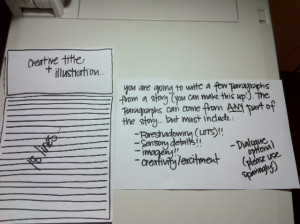 Creative title
+
illustration...
18 lines...
You are going to write a few paragraphs
from a story (you can make this up!). The
paragraphs can come from ANY part of
the story... but must include:
- Foreshadowing (LOTS)!!
- Sensory details!!
- imagery!!
- creativity/excitment
- Dialogue
optional
(please use
sparingly)